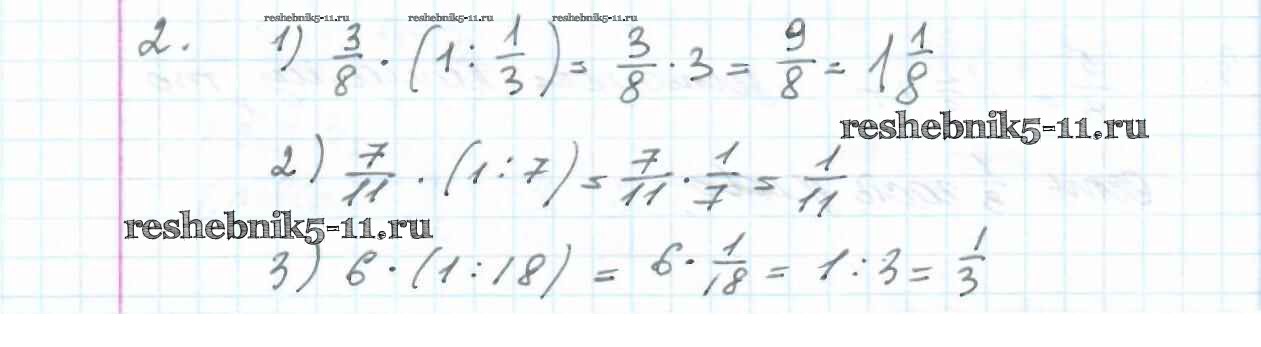 reshebnik5-11.ru reshebnik5-11.ru reshebnik5-11.ru
2. 1) 3/8 · (1 : 1/3) = 3/8 · 3 = 9/8 = 1 1/8
reshebnik5-11.ru
2) 7/11 · (1 : 7) = 7/11 · 1/7 = 1/11
reshebnik5-11.ru
3) 6 · (1 : 18) = 6 · 1/18 = 1 : 3 = 1/3